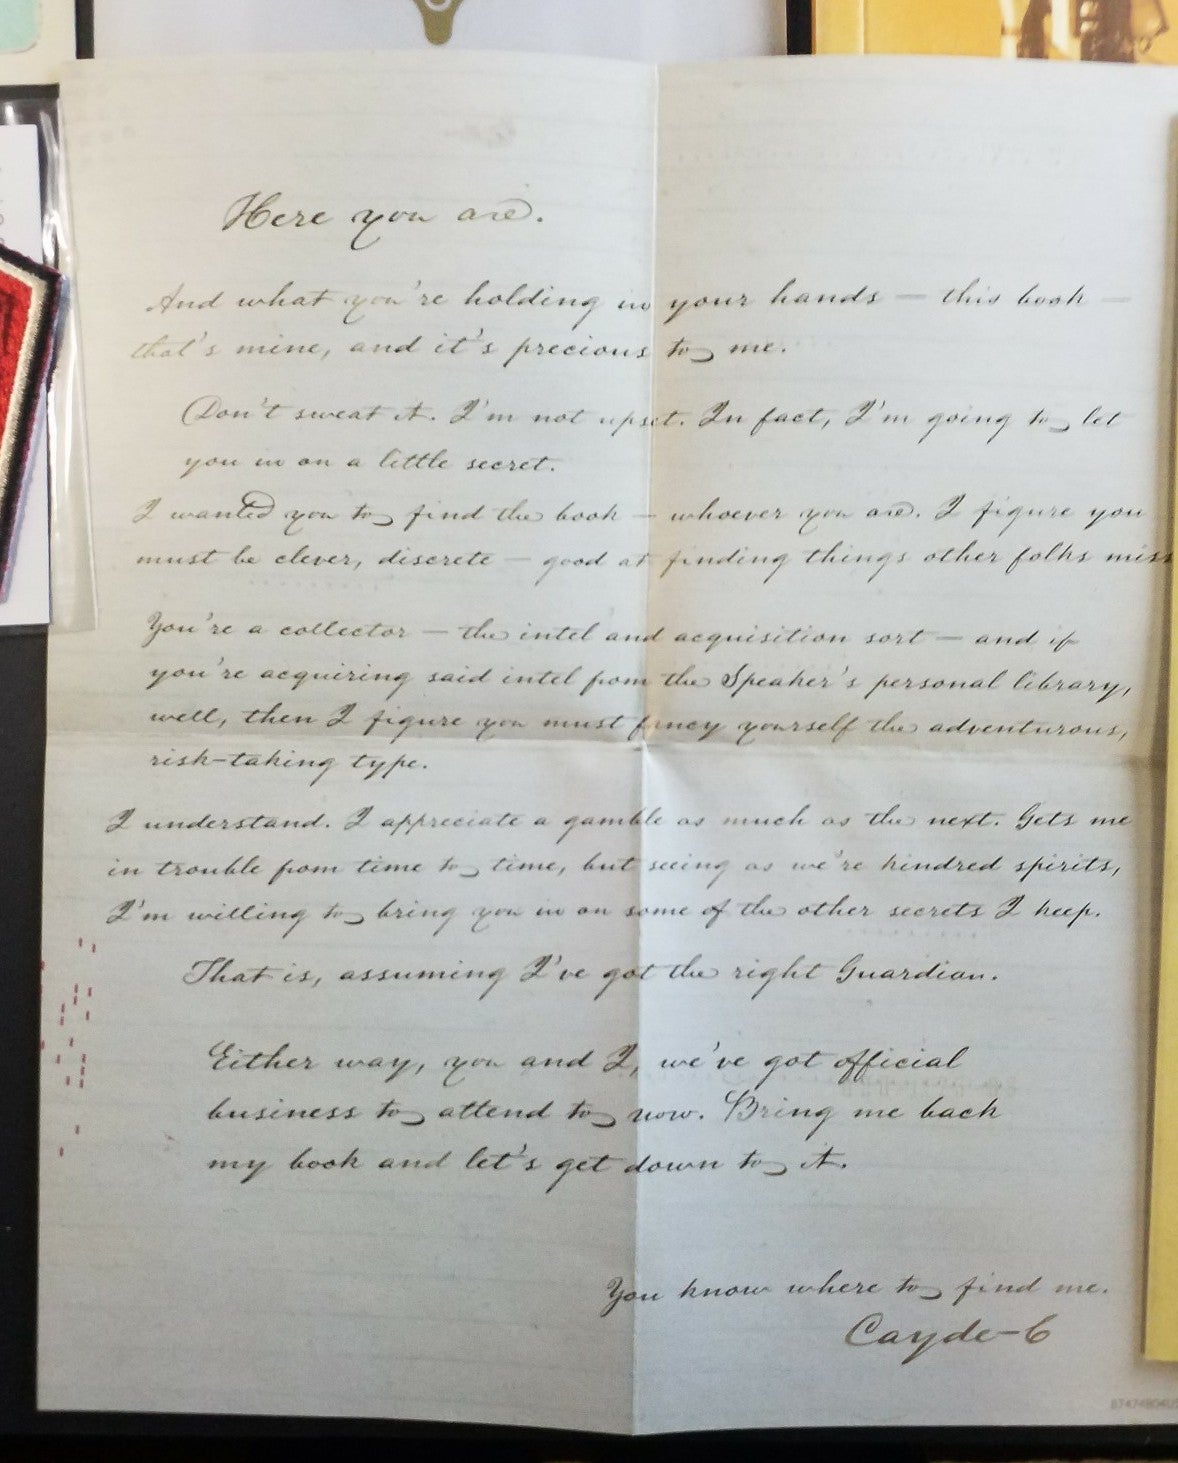 Here you are.
And what you're holding in your hands — this book —
that's mine, and it's precious to me.
Don't sweat it. I'm not upset. In fact, I'm going to let
you in on a little secret.
I wanted you to find the book — whoever you are. I figure you
must be clever, discrete — good at finding things other folks miss
You're a collector — the intel and acquisition sort — and if
you're acquiring said intel from the Speaker's personal library,
well, then I figure you must fancy yourself the adventurous,
risk-taking type.
I understand. I appreciate a gamble as much as the next. Gets me
in trouble from time to time, but seeing as we're kindred spirits,
I'm willing to bring you in on some of the other secrets I keep.
That is, assuming I've got the right Guardian.
Either way, you and I, we've got official
business to attend to now. Bring me back
my book and let's get down to it.
You know where to find me.
Cayde-6